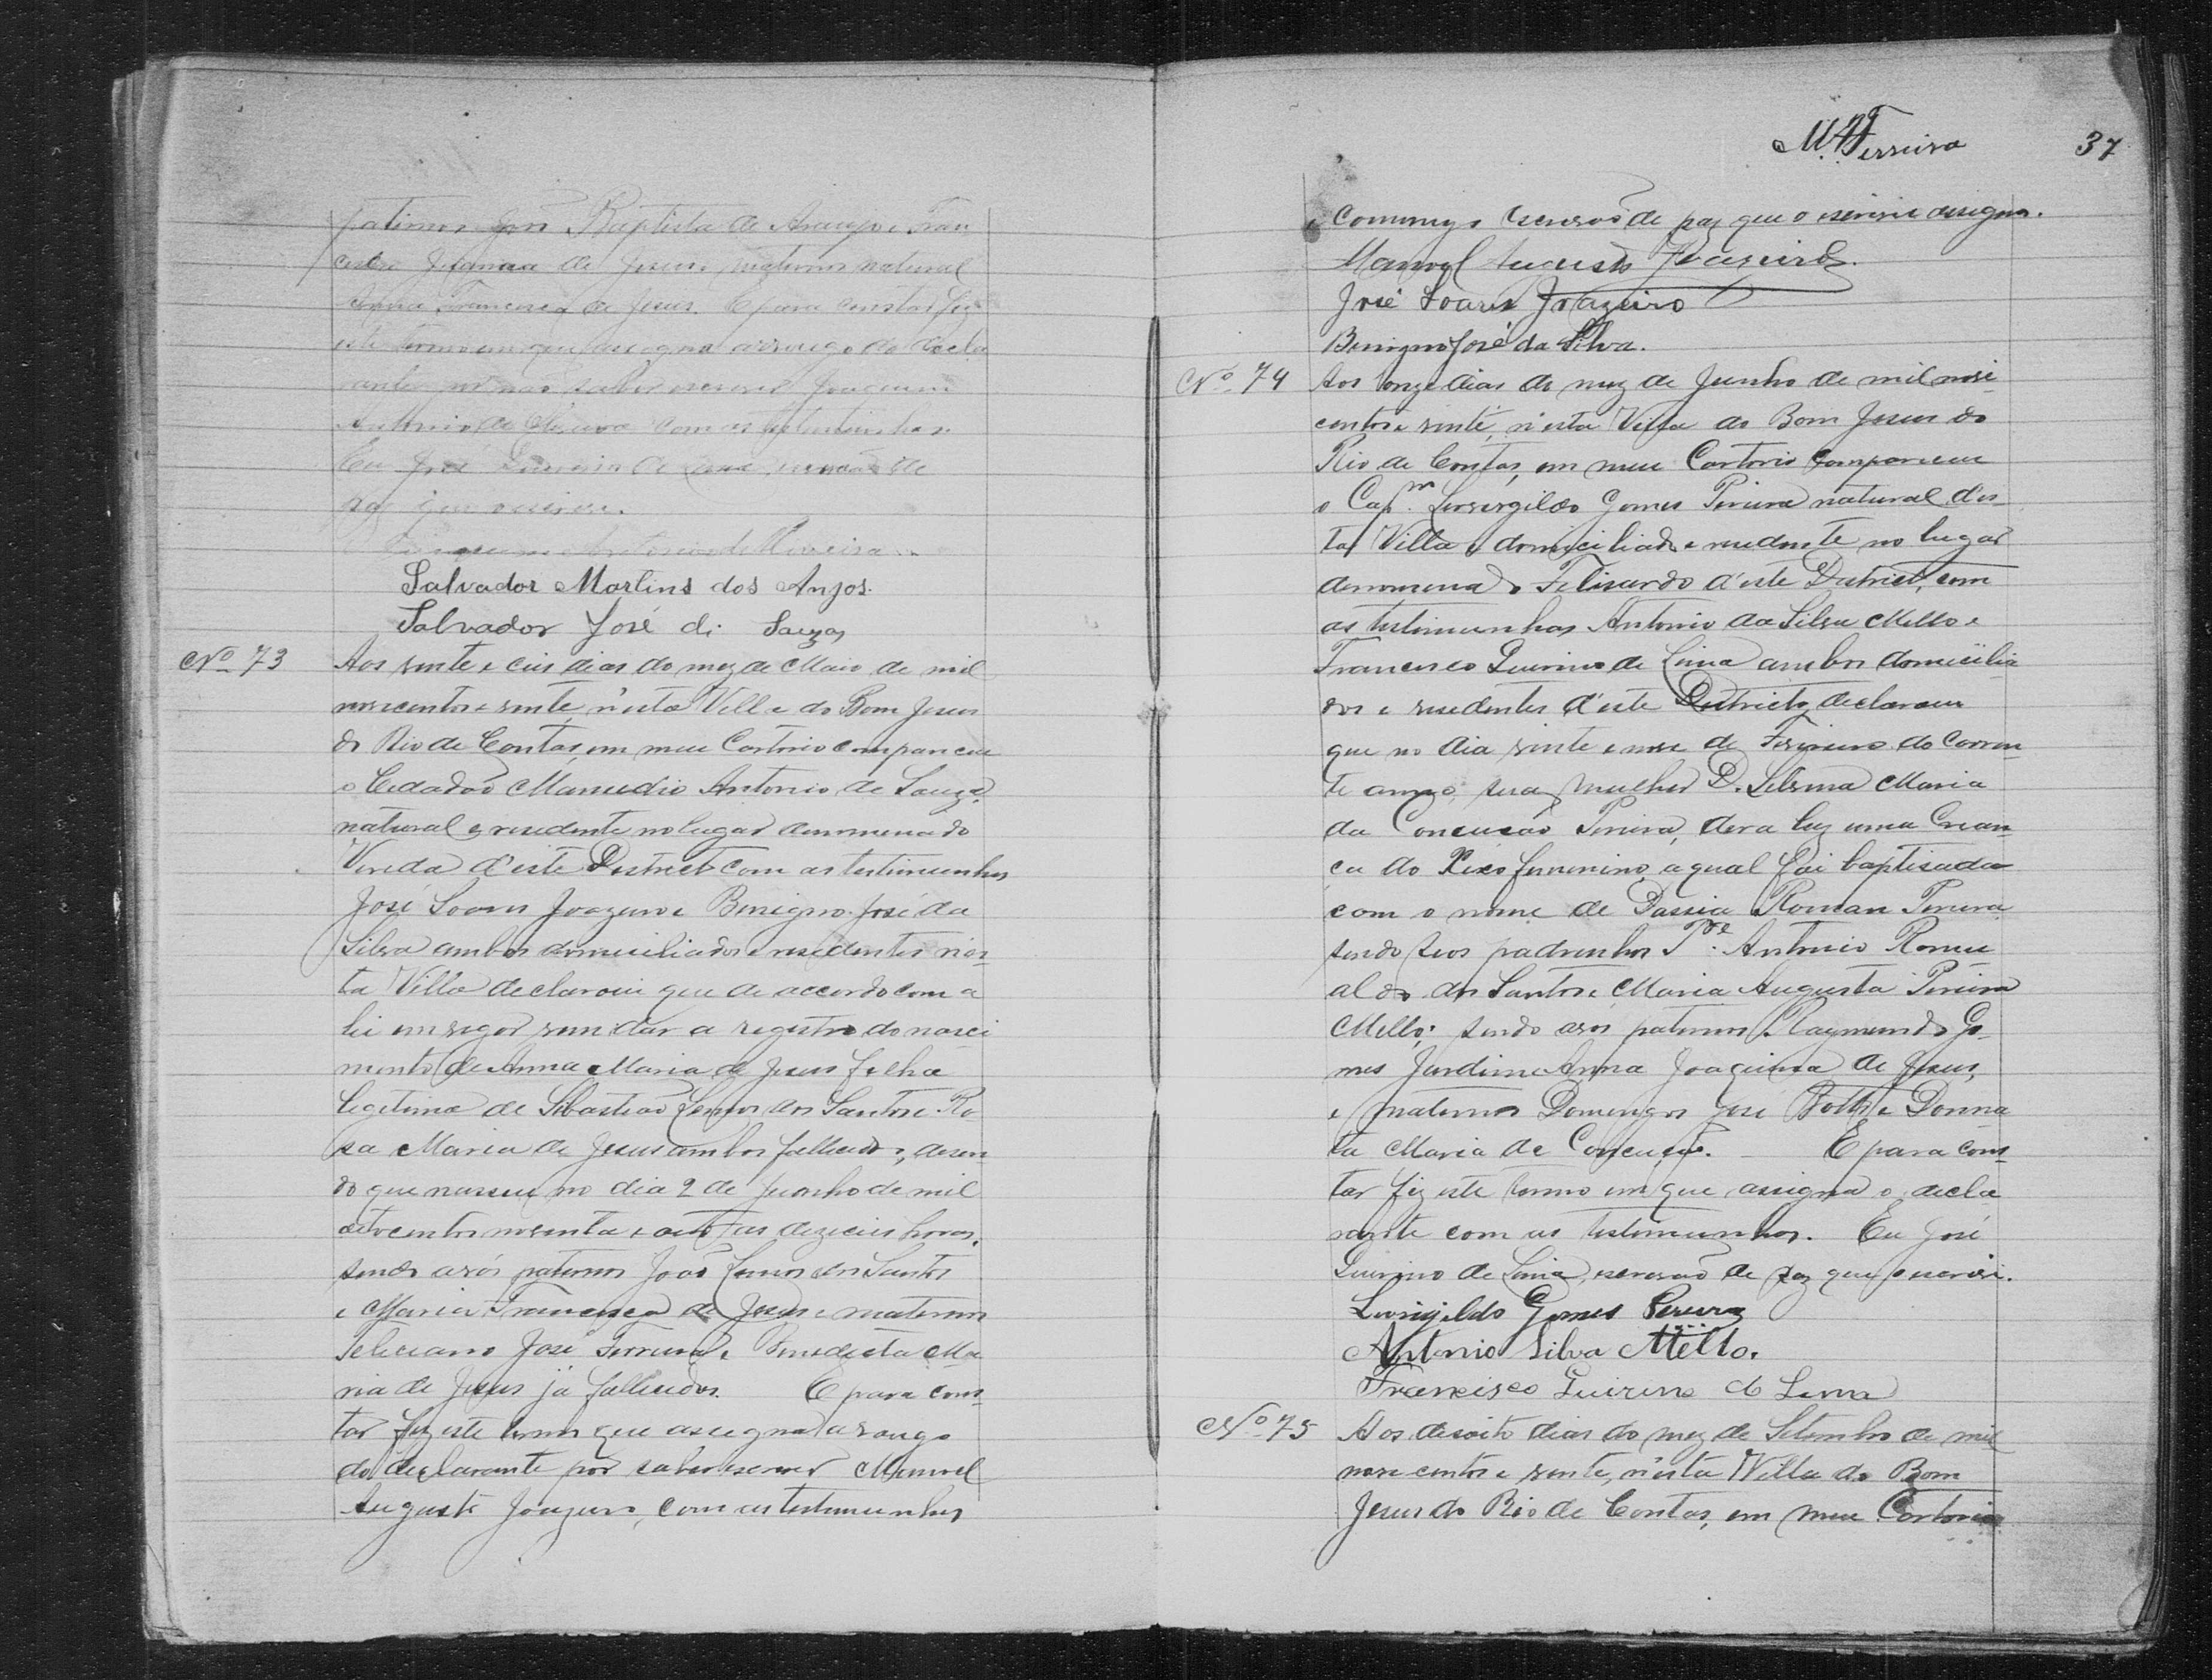 paternos João Baptista de Araujo e Fran
cisca Joanna de Jesus, maternos natural
Anna Francisca de Jesus. E para constar fiz
este termo em que assigna arrôgo do decla
rante por não saber escrever Joaquim
Antonio de Oliveira com as testimunhas.
Eu José Quirino de Lima, escrivão de
paz que o escrevi.
Joaquim Antonio de Oliveira
Salvador Martins dos Anjos.
Salvador José di Souza
Nº 73 Aos vinte e ceis dias do mez de Maio de mil
novecentos e vinte, n'esta Villa do Bom Jesus
do Rio de Contas, em meu Cartorio compareceu
o Cedadão Antonio de Souza,
natural e residente no lugar denomenado
Vereda d'este Destricto com as testimunhas
José Soares Joazeiro e Benigno José da
Silva ambos domiciliados e residentes nes-
ta Villa declarou que de accordo com a
lei em vegor vem dar a registro do nasci
mento de Anna Maria de Jesus filha
legitima de Sebastião Lemos dos Santos e Ro-
sa Maria de Jesus ambos fallecidos, desen-
do que nasceu no dia 2 de Junho de mil
oitocentos noventa e oito as dezeceis horas,
sendo avós paternos João Lemos dos Santos
e Maria Francisca de Jesus e maternos
Feliciano José Ferreira e Benedicta Ma-
ria de Jesus já fallecidos. E para cons-
tar fiz este termo que assegna a rougo
do declarante por saber escrever Manoel
Augusto Joazeiro, com as testimunhas
M. A. Ferreira 37
e comnigo escrivão de paz que o escrevi e assigno.
Manoel Augusto Joazeiro.
José Soares Joazeiro
Benigno José da Silva.
Nº 74 Aos onze dias do mez de Junho de mil nove-
centos e vinte, n'esta Villa do Bom Jesus do
Rio de Contas, em meu Cartorio compareceu
o Capm. Leovergildo Gomes Pereira natural d'es-
ta Villa e domiciliado e residente no lugar
denomenado Felisardo d'este Destricto, com
as testimunhas Antonio da Silva Mello e
Francisco Quirino de Lima ambos domicilia
dos e residentes d'este Destricto, declarou
que no dia vinte e nove de Fevereiro do corren-
te anno, sua mulher D. Maria
da Conceição Pereira, dera luz uma crean-
ça do sexo femenino, a qual foi baptisada
com o nome de Dassia Roman Pereira
sendo seos padrinhos Pe. Antonio Romu
aldo dos Santos e Maria Augusta Pereira
Mello; sendo avós paternos Raymundo Go-
mes Jardim e Anna Joaquina de Jesus,
e maternos Domingos José e Donna
ta Maria de Conceição. E para cons-
tar fiz este termo em que assigna o decla
rante com as testimunhas. Eu José
Quirino de Lima, escrivão de paz que o escrevi.
Leovigildo Gomes Pereira
Antonio Silva Mello.
Francisco Quirino de Lima
Nº 75 Aos desoito dias do mez de Setembro de mil
nove centos e vinte, n'esta Villa do Bom
Jesus do Rio de Contas, em meu Cartorio